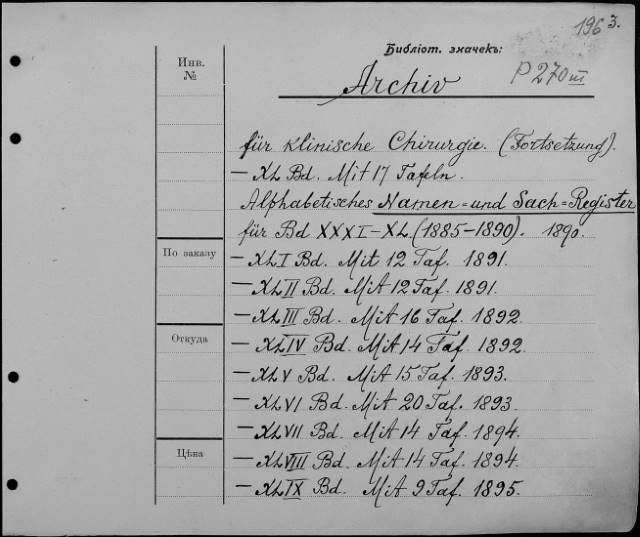 196 3.
Библіот. значекъ:
P 270 III
Инв.
№
Archiv
für klinische Chirurgie. (Fortsetzung).
— XL Bd. Mit 17 Tafeln.
Alphabetisches Namen = und Sach = Register
für Bd XXXI — XL (1885-1890). 1890.
По заказу
— XLI Bd. Mit 12 Taf. 1891.
— XLII Bd. Mit 12 Taf. 1891.
— XLIII Bd. Mit 16 Taf. 1892.
Откуда
— XLIV Bd. Mit 14 Taf. 1892.
— XLV Bd. Mit 15 Taf. 1893.
— XLVI Bd. Mit 20 Taf. 1893.
— XLVII Bd. Mit 14 Taf. 1894.
Цѣна
— XLVIII Bd. Mit 14 Taf. 1894.
— XLIX Bd. Mit 9 Taf. 1895.